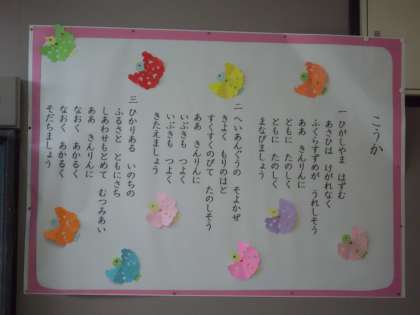 こうか
一 ひがしやま はずむ
あさひは けがれなく
ふくらすずめが うれしそう
ああ きんりんに
ともに たのしく
ともに たのしく
まなびましょう
二 へいあんぐうの そよかぜ
きよく もりのはと
すくすくのびて たのしそう
ああ きんりんに
いぶきも つよく
いぶきも つよく
きたえましょう
三 ひかりある いのちの
ふるさと ともにさち
しあわせもとめて むつみあい
ああ きんりんに
なおく あかるく
なおく あかるく
そだちましょう